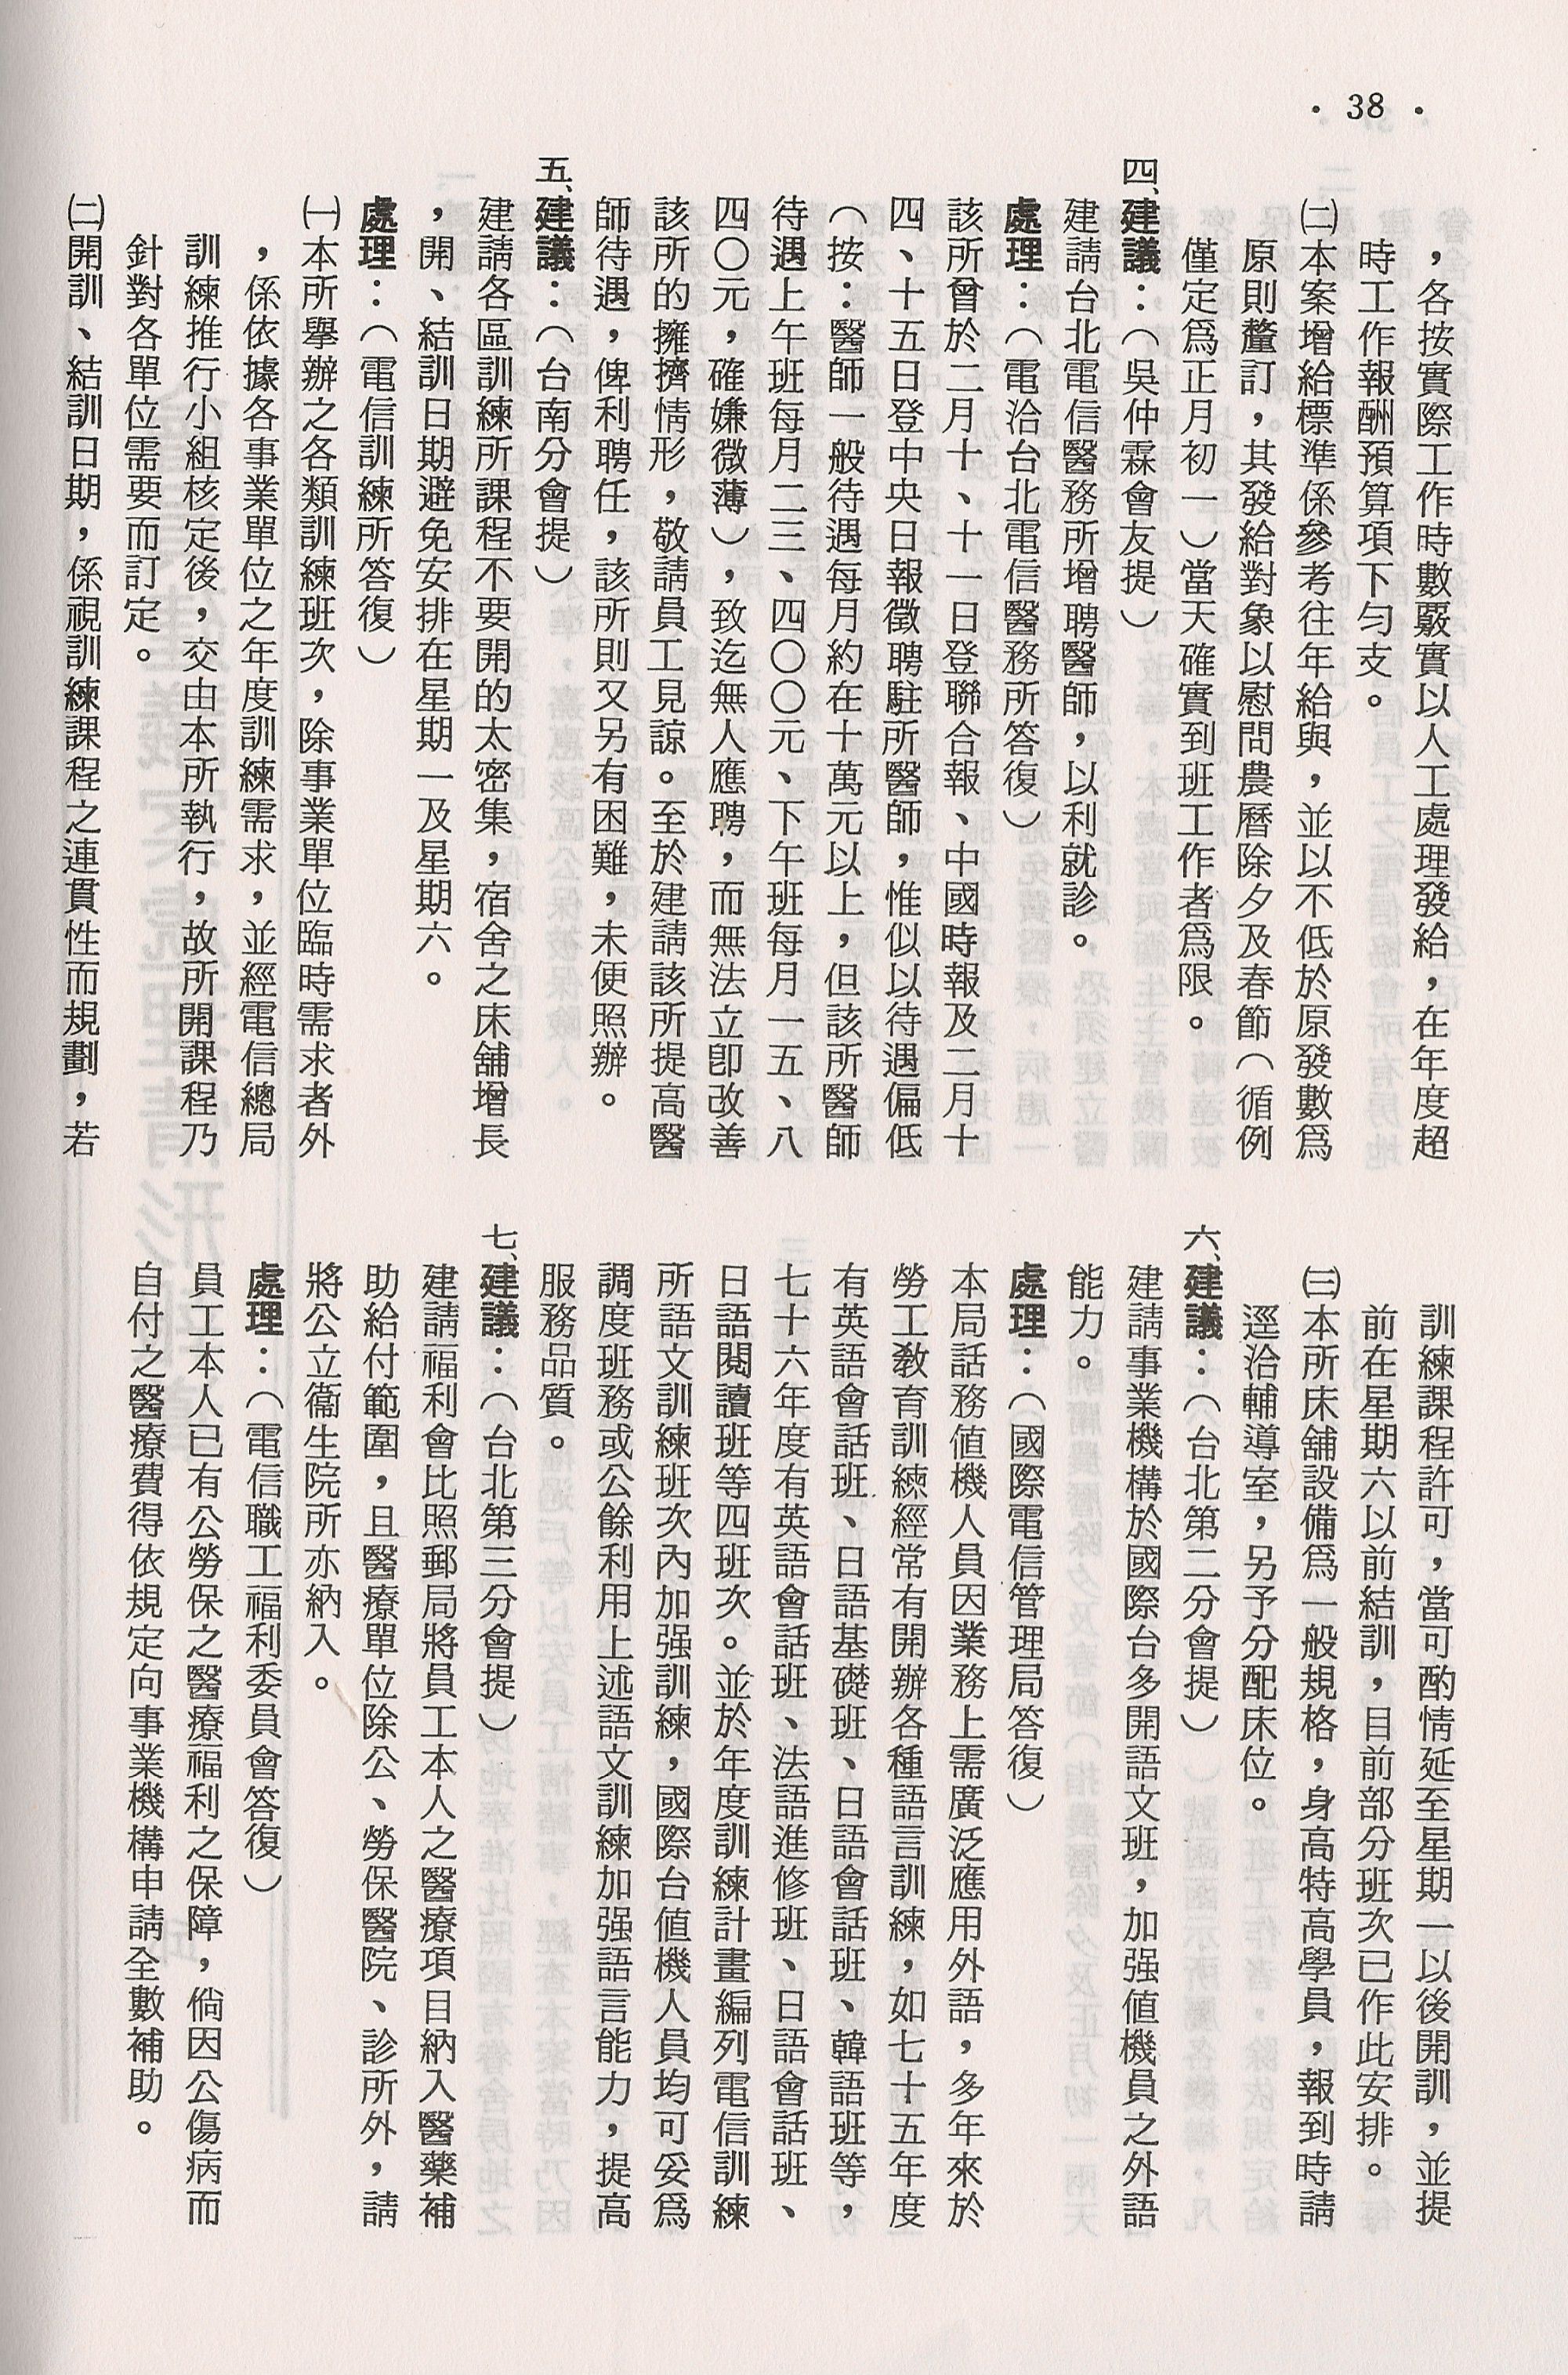 • 38 •
，各按實際工作時數覈實以人工處理發給，在年度超
時工作報酬預算項下勻支。
㈡本案增給標準係參考往年給與，並以不低於原發數爲
原則釐訂，其發給對象以慰問農曆除夕及春節（循例
僅定爲正月初一）當天確實到班工作者爲限。
四、建議：（吳仲霖會友提）
建請台北電信醫務所增聘醫師，以利就診。
處理：（電洽台北電信醫務所答復）
該所曾於二月十、十一日登聯合報、中國時報及二月十
四、十五日登中央日報徵聘駐所醫師，惟似以待遇偏低
（按：醫師一般待遇每月約在十萬元以上，但該所醫師
待遇上午班每月二三、四〇〇元、下午班每月一五、八
四〇元，確嫌微薄），致迄無人應聘，而無法立卽改善
該所的擁擠情形，敬請員工見諒。至於建請該所提高醫
師待遇，俾利聘任，該所則又另有困難，未便照辦。
五、建議：（台南分會提）
建請各區訓練所課程不要開的太密集，宿舍之床舖增長
，開、結訓日期避免安排在星期一及星期六。
處理：（電信訓練所答復）
㈠本所舉辦之各類訓練班次，除事業單位臨時需求者外
，係依據各事業單位之年度訓練需求，並經電信總局
訓練推行小組核定後，交由本所執行，故所開課程乃
針對各單位需要而訂定。
㈡開訓、結訓日期，係視訓練課程之連貫性而規劃，若
訓練課程許可，當可酌情延至星期一以後開訓，並提
前在星期六以前結訓，目前部分班次已作此安排。
㈢本所床舖設備爲一般規格，身高特高學員，報到時請
逕洽輔導室，另予分配床位。
六、建議：（台北第二分會提）
建請事業機構於國際台多開語文班，加强値機員之外語
能力。
處理：（國際電信管理局答復）
本局話務値機人員因業務上需廣泛應用外語，多年來於
勞工敎育訓練經常有開辦各種語言訓練，如七十五年度
有英語會話班、日語基礎班、日語會話班、韓語班等，
七十六年度有英語會話班、法語進修班、日語會話班、
日語閱讀班等四班次。並於年度訓練計畫編列電信訓練
所語文訓練班次內加强訓練，國際台値機人員均可妥爲
調度班務或公餘利用上述語文訓練加强語言能力，提高
服務品質。
七、建議：（台北第三分會提）
建請福利會比照郵局將員工本人之醫療項目納入醫藥補
助給付範圍，且醫療單位除公、勞保醫院、診所外，請
將公立衞生院所亦納入。
處理：（電信職工福利委員會答復）
員工本人已有公勞保之醫療福利之保障，倘因公傷病而
自付之醫療費得依規定向事業機構申請全數補助。